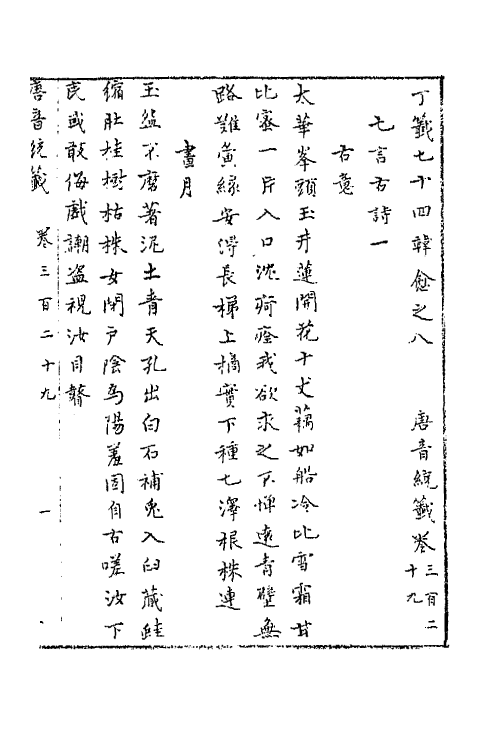 丁籤七十四韓愈之八　唐音統籤卷三百二十九
七言古詩一
古意
太華峯頭玉井蓮開花十丈藕如船冷比雪霜甘
比蜜一片入口沈痾痊我欲求之不憚遠青壁無
路難夤緣安得長梯上摘實下種七澤根株連
晝月
玉盌不磨著泥土青天孔出白石補兎入臼藏蛙
縮肚桂樹枯株女閉戶陰為陽羞固自古嗟汝下
民或敢侮戲謿盗視汝目瞽
唐音統籤　卷三百二十九　一